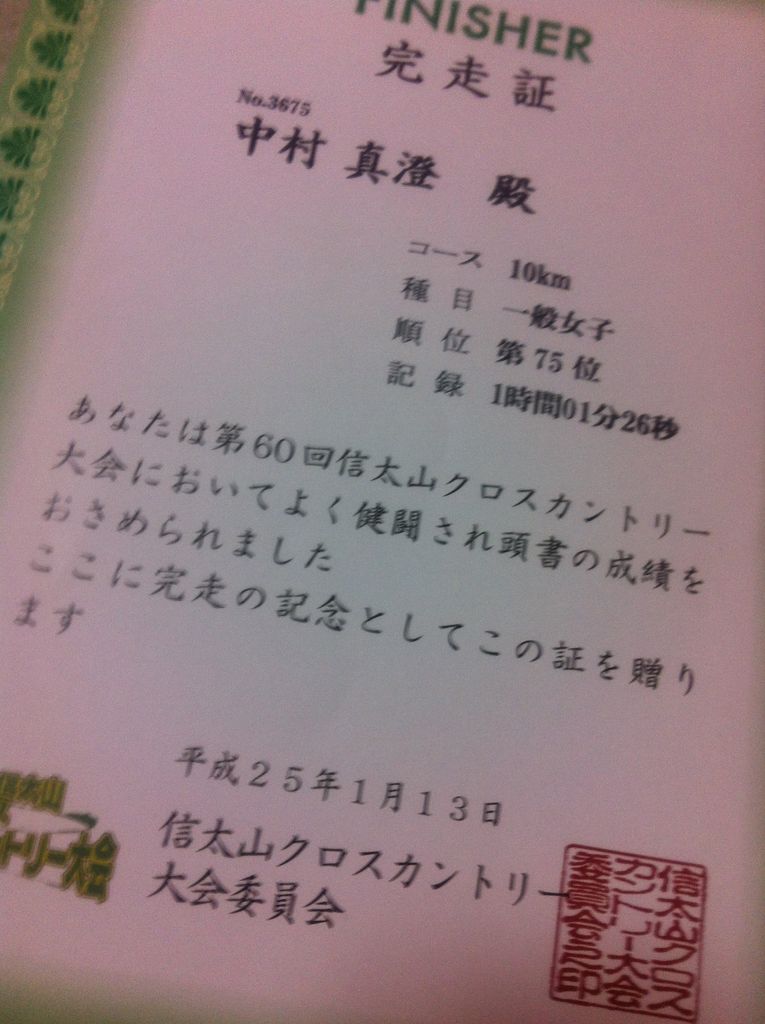 FINISHER
完走証
No.3675
中村 真澄 殿
コース 10km
種目 一般女子
順位 第75位
記録 1時間01分26秒
あなたは第60回信太山クロスカントリー
大会においてよく健闘され頭書の成績を
おさめられました
ここに完走の記念としてこの証を贈り
ます
平成25年1月13日
信太山クロスカントリー
大会委員会
信太山クロス
カントリー大会
委員会之印
太山
トリー大会